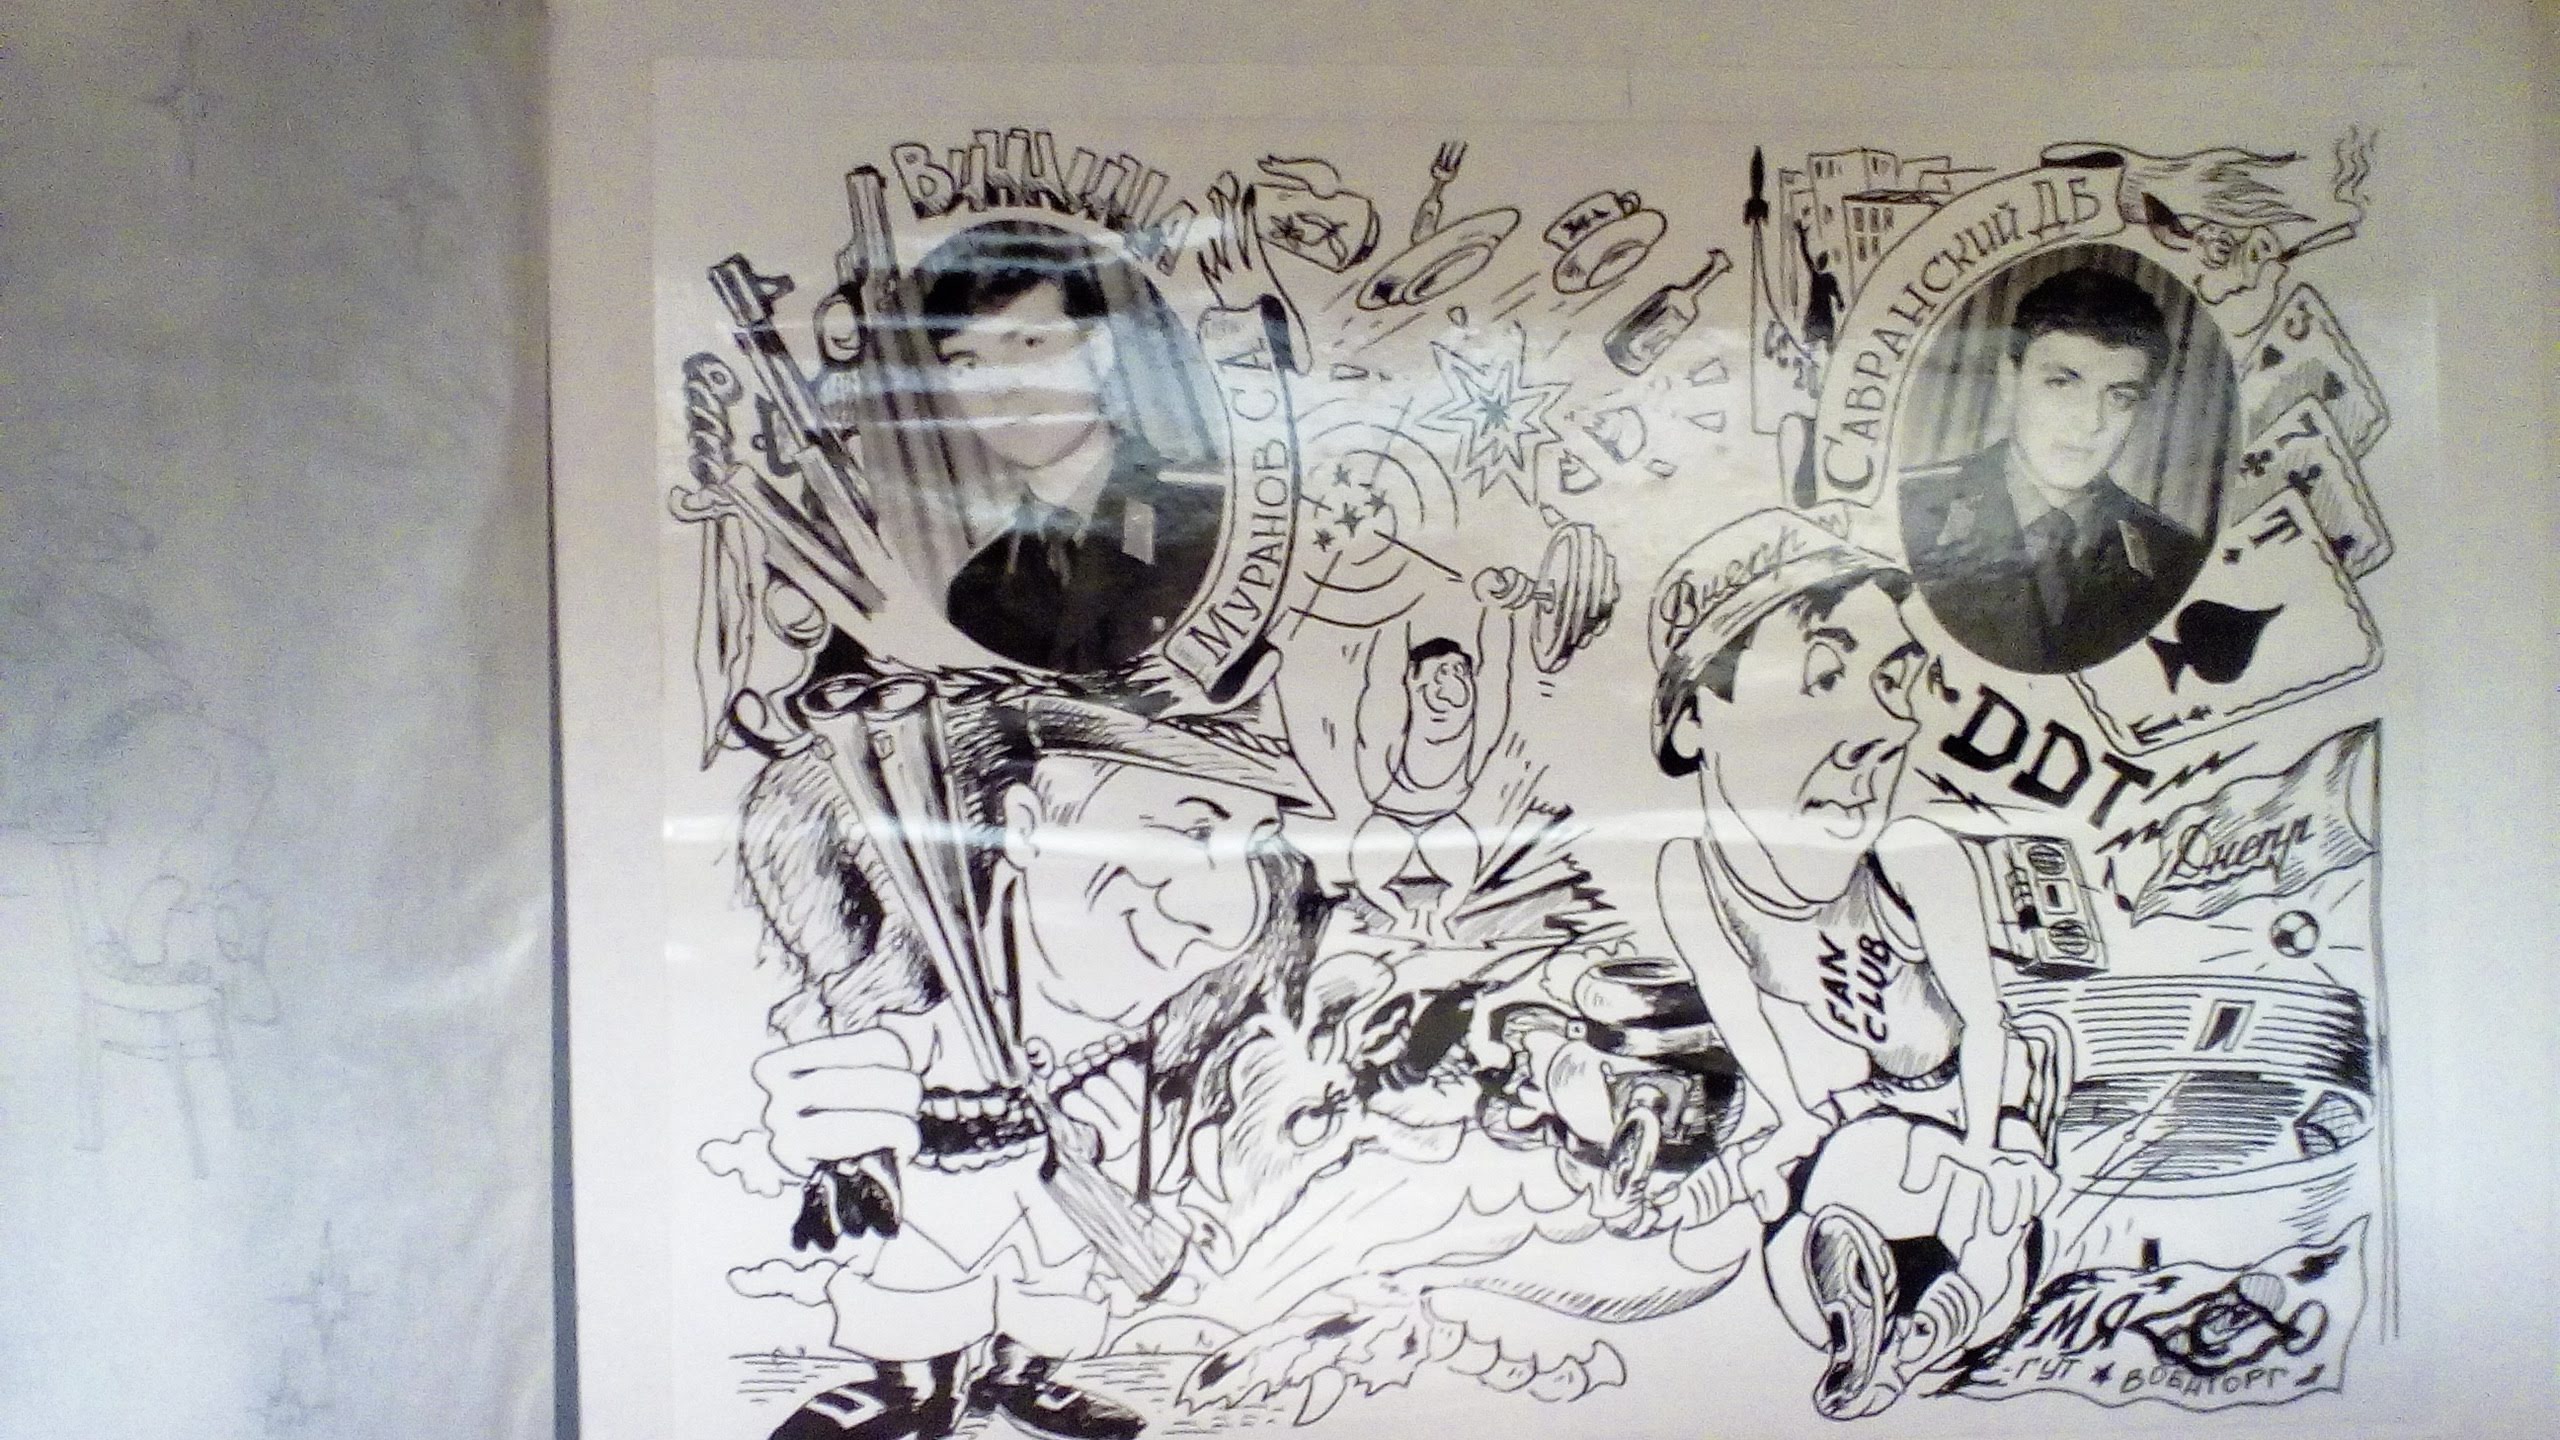 ВИННИЦА
МУРАНОВ СА
САВРАНСКИЙ ДБ
5
7
Т
Днепр
DDT
Днепр
FAN
CLUB
МЯ
ГУТ ★ ВОЕНТОРГ